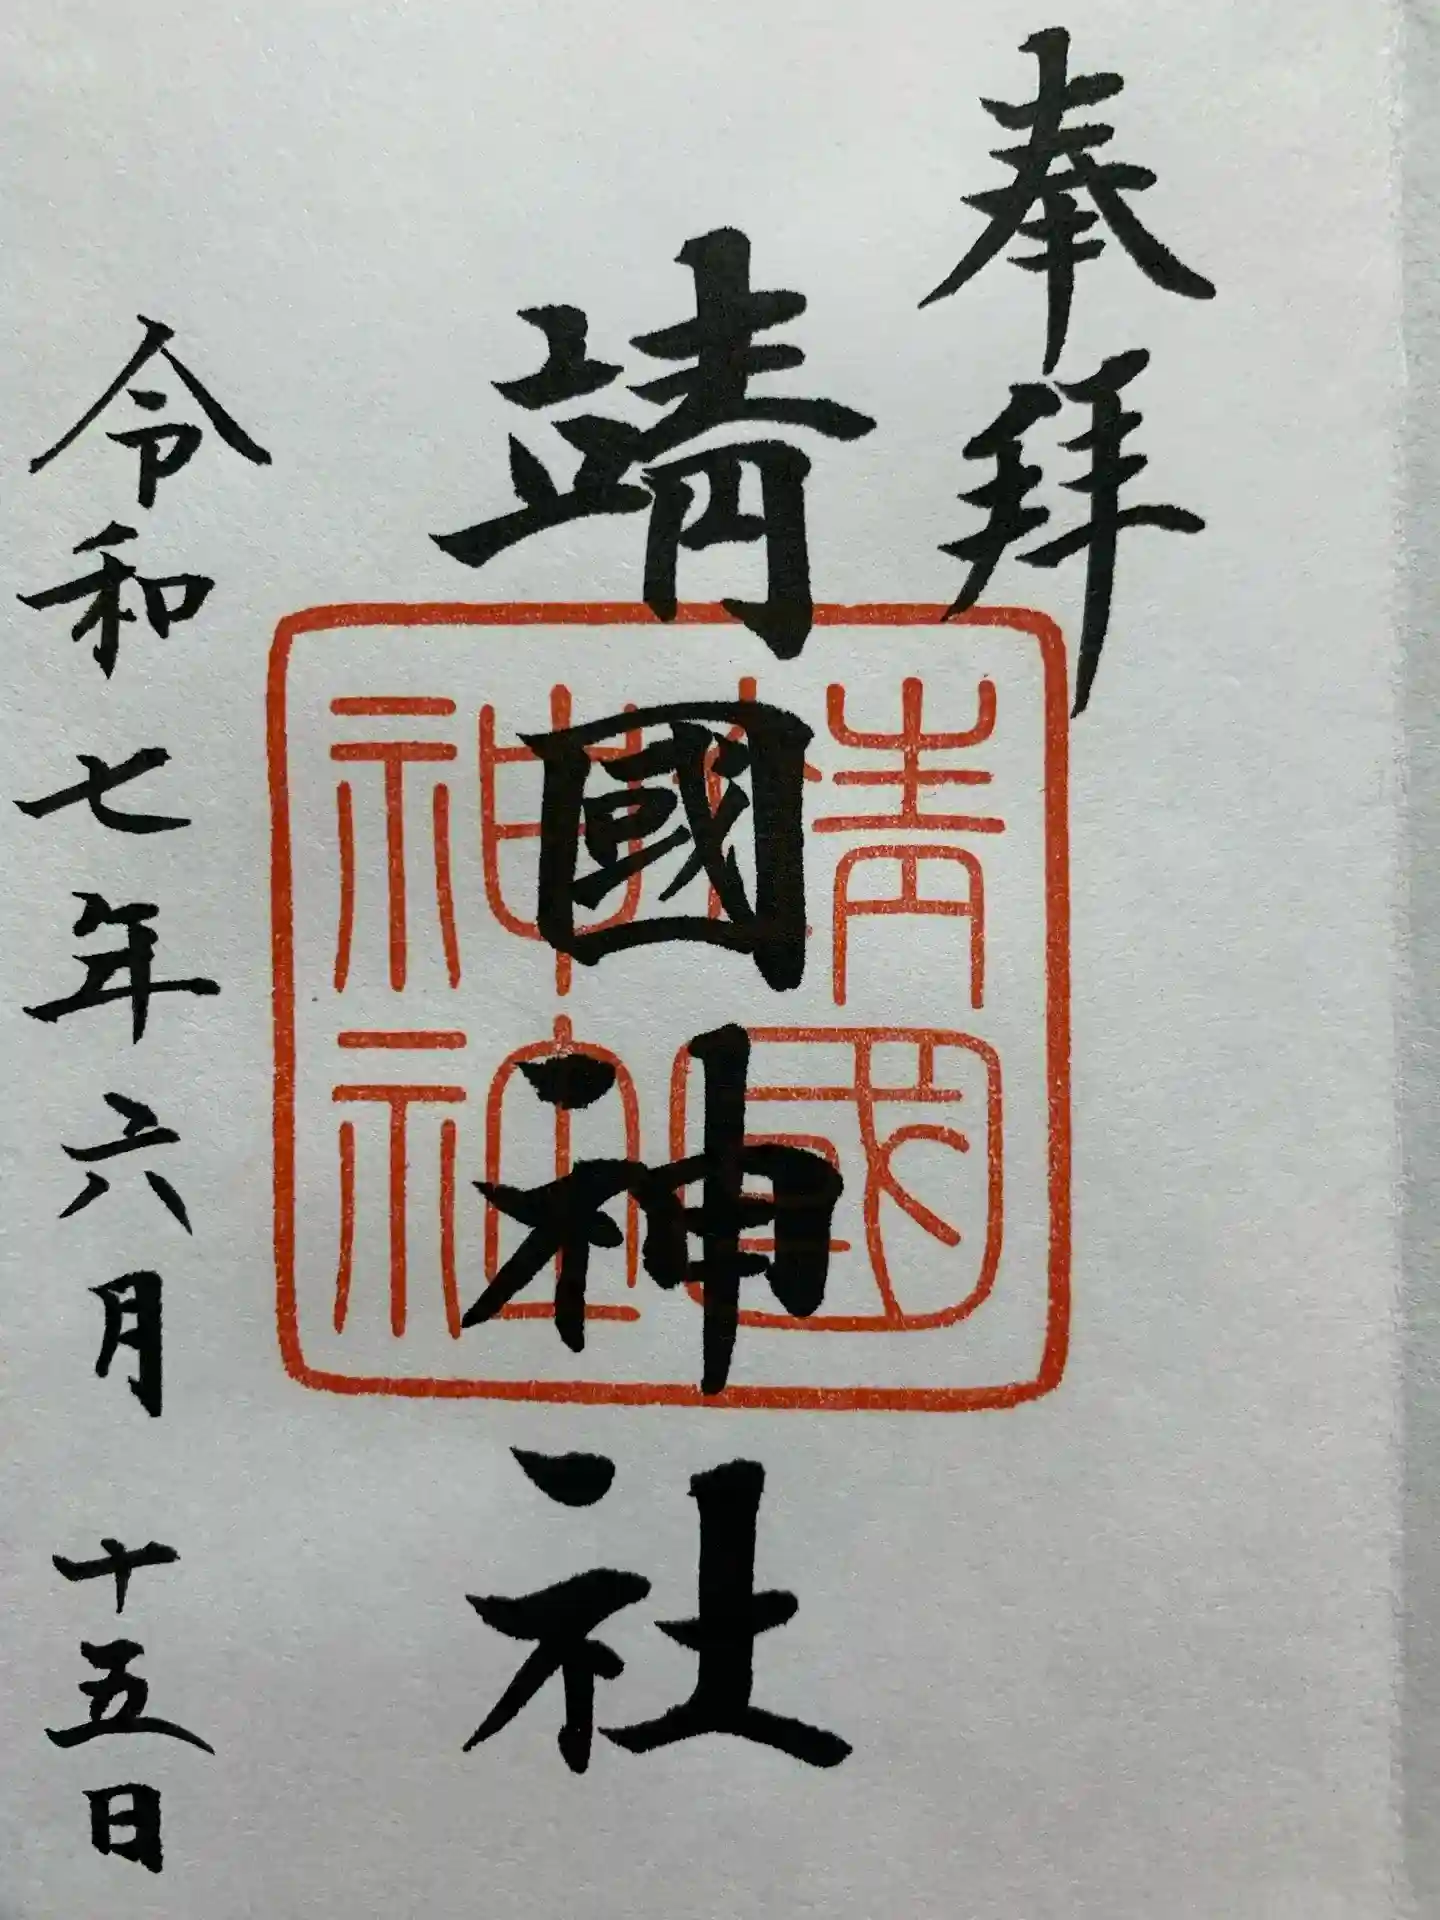 奉拝
靖國神社
靖國神社
令和七年六月十五日